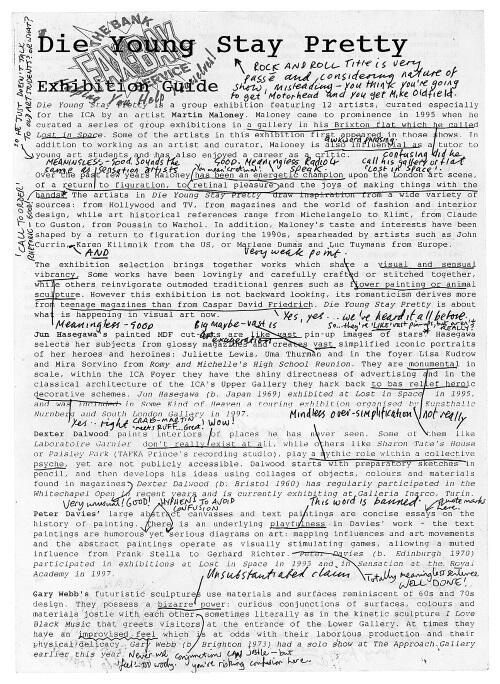 Die Young Stay Pretty
THE BANK
FAX-BAK
SERVICE
Exhibition Guide
ROCK AND ROLL Title is very
passé and, considering nature of
show, misleading - you think you're going
to get Motorhead and you get Mike Oldfield.
Die Young Stay Pretty is a group exhibition featuring 12 artists, curated especially
for the ICA by artist Martin Maloney. Maloney came to prominence in 1995 when he
curated a series of group exhibitions in a gallery in his Brixton flat which he called
Lost in Space. Some of the artists in this exhibition first appeared in those shows. In
addition to working as an artist and curator, Maloney is also influential as a tutor to
young art students and has also enjoyed a career as a critic.
MEANINGLESS - Good. Sounds the
same as Sensation artists
GOOD. Meaningless Radio 4
speak.
confusing did he
call his gallery or flat
'Lost in Space'?
Over the past few years Maloney has been an energetic champion upon the London art scene,
of a return to figuration, to retinal pleasure and the joys of making things with the
hands. The artists in Die Young Stay Pretty draw inspiration from a wide variety of
sources: from Hollywood and TV, from magazines and the world of fashion and interior
design, while art historical references range from Michelangelo to Klimt, from Claude
to Guston, from Poussin to Warhol. In addition, Maloney's taste and interests have been
shaped by a return to figuration during the 1990s, spearheaded by artists such as John
Currin, Karen Kilimnik from the US, or Marlene Dumas and Luc Tuymans from Europe.
AND
Very weak point.
The exhibition selection brings together works which share a visual and sensual
vibrancy. Some works have been lovingly and carefully crafted or stitched together,
while others reinvigorate outmoded traditional genres such as flower painting or animal
sculpture. However this exhibition is not backward looking, its romanticism derives more
from teenage magazines than from Caspar David Friedrich. Die Young Stay Pretty is about
what is happening in visual art now.
Yes, yes... we've heard it all before.
Meaningless - GOOD
Big maybe - vast is
exaggeration
Jun Hasegawa's painted MDF cut-outs are like vast pin-up images of stars. Hasegawa
selects her subjects from glossy magazines and creates vast simplified iconic portraits
of her heroes and heroines: Juliette Lewis, Uma Thurman and in the foyer Lisa Kudrow
and Mira Sorvino from Romy and Michelle's High School Reunion. They are monumental in
scale, within the ICA Foyer they have the shiny directness of advertising and in the
classical architecture of the ICA's Upper Gallery they hark back to bas relief heroic
decorative schemes. Jun Hasegawa (b. Japan 1969) exhibited at Lost in Space in 1995,
and was included in Some Kind of Heaven a touring exhibition organised by Kunsthalle
Nurnberg and South London Gallery in 1997.
Mindless over-simplification
not really
Yes.. right
Great! Wow!
Dexter Dalwood paints interiors of places he has never seen. Some of them like
Laboratoire Garnier don't really exist at all, while others like Sharon Tate's House
or Paisley Park (TAFKA Prince's recording studio), play a mythic role within a collective
psyche, yet are not publicly accessible. Dalwood starts with preparatory sketches in
pencil, and then develops his ideas using collages of objects, colours and materials
found in magazines. Dexter Dalwood (b. Bristol 1960) has regularly participated in the
Whitechapel Open in recent years and is currently exhibiting at Galleria Inarco Turin.
Very unusual! GOOD!
HYPHEN? TO AVOID
CONFUSION
This word is banned
quote marks
here.
Peter Davies' large abstract canvasses and text paintings are concise essays on the
history of painting. There is an underlying playfulness in Davies' work - the text
paintings are humorous yet serious diagrams on art: mapping influences and art movements
and the abstract paintings operate as visually stimulating games, allowing a muted
influence from Frank Stella to Gerhard Richter. Peter Davies (b. Edinburgh 1970)
participated in exhibitions at Lost in Space in 1995 and in Sensation at the Royal
Academy in 1997.
Unsubstantiated claim
Totally meaningless sentence
WELL DONE!
Gary Webb's futuristic sculptures use materials and surfaces reminiscent of 60s and 70s
design. They possess a bizarre power: curious conjunctions of surfaces, colours and
materials jostle with each other, sometimes literally as in the kinetic sculpture I Love
Black Music that greets visitors at the entrance of the Lower Gallery. At times they
have an improvised feel which is at odds with their laborious production and their
physical delicacy. Gary Webb (b. Brighton 1973) had a solo show at The Approach Gallery
earlier this year.
Never use conjunctions CAN jostle - but
you're risking confusion here.